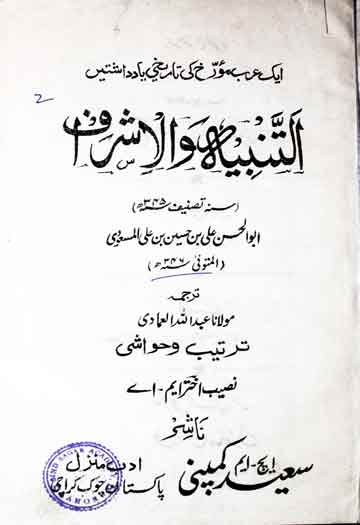 ایک عرب مؤرخ کی تاریخی یادداشتیں
2
التَّنبِیہ وَالْاِشرَاف
(سنہ تصنیف ۳۴۵ھ)
ابوالحسن علی بن حسین بن علی المسعودی
(المتوفیٰ ۳۴۶ھ)
ترجمہ
مولانا عبداللہ العمادی
ترتیب وحواشی
نصیب اختر ایم-اے
ناشر
ایچ-ایم سعید کمپنی
ادب منزل
پاکستان چوک کراچی
SIND SAGAR ACADEMY
LAHORE